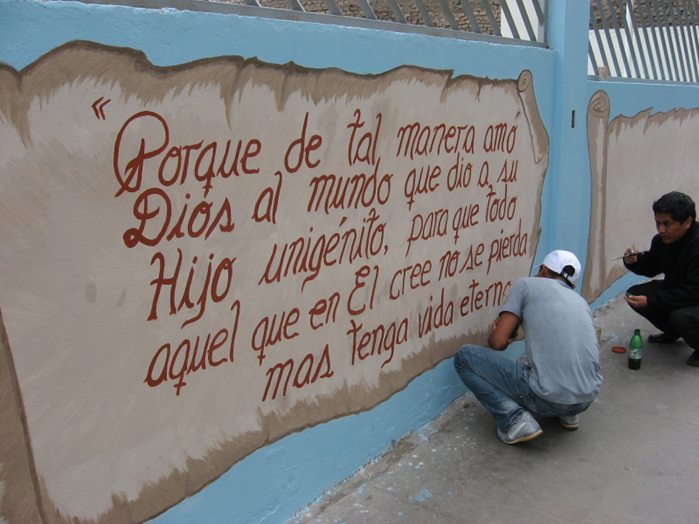 “Porque de tal manera amó
Dios al mundo que dio a su
Hijo unigénito, para que todo
aquel que en El cree no se pierda
mas tenga vida eterna